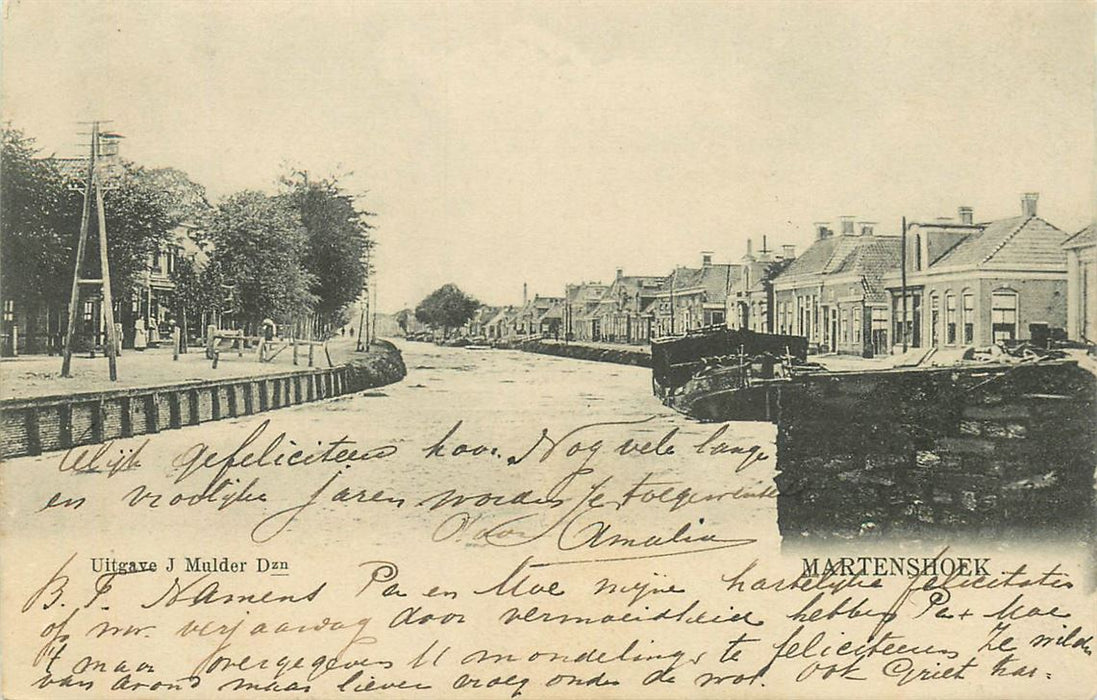 Wijk gefeliciteerd hoor. Nog vele lange
en vroolijke jaren worden je toegewenscht
door
Amalia
Uitgave J Mulder Dzn
MARTENSHOEK
B. T. Namens Pa en Moe mijne hartelijke felicitatie
op uw verjaardag door vermoeidheid hebben Pa + Moe
't maar overgegeven U mondelings te feliciteeren Ze wilden
van avond maar liever vroeg onder de wol. Ook Griet har-